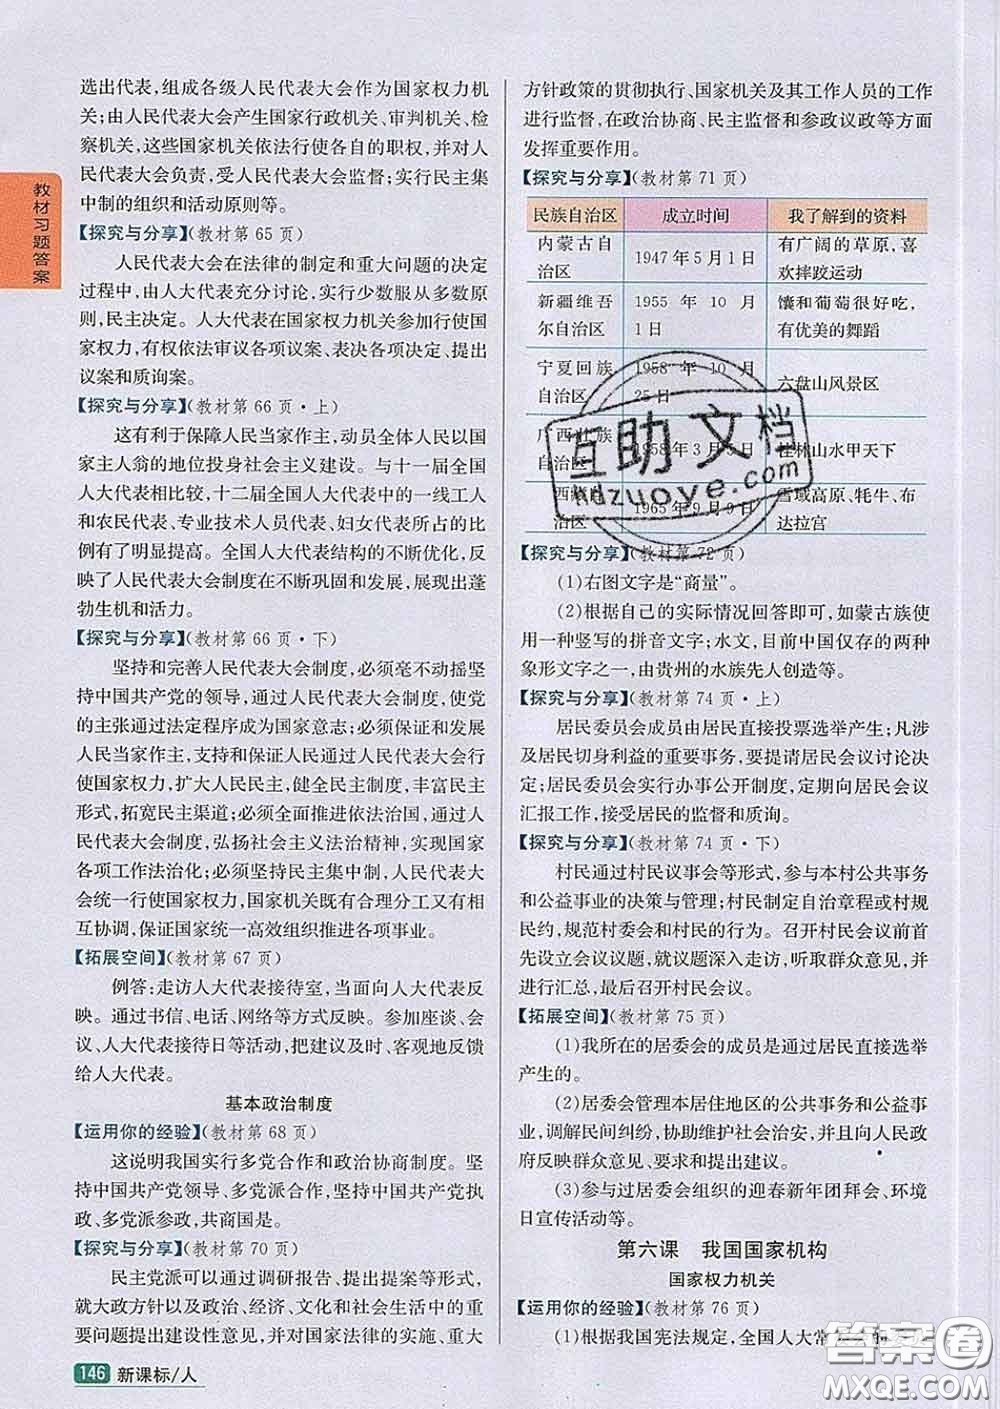 教材习题答案
选出代表,组成各级人民代表大会作为国家权力机
关;由人民代表大会产生国家行政机关、审判机关、检
察机关,这些国家机关依法行使各自的职权,并对人
民代表大会负责,受人民代表大会监督;实行民主集
中制的组织和活动原则等。
【探究与分享】(教材第 65 页)
人民代表大会在法律的制定和重大问题的决定
过程中,由人大代表充分讨论,实行少数服从多数原
则,民主决定。人大代表在国家权力机关参加行使国
家权力,有权依法审议各项议案、表决各项决定、提出
议案和质询案。
【探究与分享】(教材第 66 页·上)
这有利于保障人民当家作主,动员全体人民以国
家主人翁的地位投身社会主义建设。与十一届全国
人大代表相比较,十二届全国人大代表中的一线工人
和农民代表、专业技术人员代表、妇女代表所占的比
例有了明显提高。全国人大代表结构的不断优化,反
映了人民代表大会制度在不断巩固和发展,展现出蓬
勃生机和活力。
【探究与分享】(教材第 66 页·下)
坚持和完善人民代表大会制度,必须毫不动摇坚
持中国共产党的领导,通过人民代表大会制度,使党
的主张通过法定程序成为国家意志;必须保证和发展
人民当家作主,支持和保证人民通过人民代表大会行
使国家权力,扩大人民民主,健全民主制度,丰富民主
形式,拓宽民主渠道;必须全面推进依法治国,通过人
民代表大会制度,弘扬社会主义法治精神,实现国家
各项工作法治化;必须坚持民主集中制,人民代表大
会统一行使国家权力,国家机关既有合理分工又有相
互协调,保证国家统一高效组织推进各项事业。
【拓展空间】(教材第 67 页)
例答:走访人大代表接待室,当面向人大代表反
映。通过书信、电话、网络等方式反映。参加座谈、会
议、人大代表接待日等活动,把建议及时、客观地反馈
给人大代表。
基本政治制度
【运用你的经验】(教材第 68 页)
这说明我国实行多党合作和政治协商制度。坚
持中国共产党领导、多党派合作,坚持中国共产党执
政、多党派参政,共商国是。
【探究与分享】(教材第 70 页)
民主党派可以通过调研报告、提出提案等形式,
就大政方针以及政治、经济、文化和社会生活中的重
要问题提出建设性意见,并对国家法律的实施、重大
146 新课标/人
方针政策的贯彻执行、国家机关及其工作人员的工作
进行监督,在政治协商、民主监督和参政议政等方面
发挥重要作用。
【探究与分享】(教材第 71 页)
民族自治区 成立时间 我了解到的资料
内蒙古自治区 1947 年 5 月 1 日 有广阔的草原,喜欢摔跤运动
新疆维吾尔自治区 1955 年 10 月 1 日 馕和葡萄很好吃,有优美的舞蹈
宁夏回族自治区 1958 年 10 月 25 日 六盘山风景区
广西壮族自治区 1958 年 3 月 5 日 桂林山水甲天下
西藏自治区 1965 年 9 月 9 日 雪域高原、牦牛、布达拉宫
互助文档
hdzuoye.com
【探究与分享】(教材第 72 页)
(1)右图文字是“商量”。
(2)根据自己的实际情况回答即可,如蒙古族使
用一种竖写的拼音文字;水文,目前中国仅存的两种
象形文字之一,由贵州的水族先人创造等。
【探究与分享】(教材第 74 页·上)
居民委员会成员由居民直接投票选举产生;凡涉
及居民切身利益的重要事务,要提请居民会议讨论决
定;居民委员会实行办事公开制度,定期向居民会议
汇报工作,接受居民的监督和质询。
【探究与分享】(教材第 74 页·下)
村民通过村民议事会等形式,参与本村公共事务
和公益事业的决策与管理;村民制定自治章程或村规
民约,规范村委会和村民的行为。召开村民会议前首
先设立会议议题,就议题深入走访,听取群众意见,并
进行汇总,最后召开村民会议。
【拓展空间】(教材第 75 页)
(1)我所在的居委会的成员是通过居民直接选举
产生的。
(2)居委会管理本居住地区的公共事务和公益事
业,调解民间纠纷,协助维护社会治安,并且向人民政
府反映群众意见、要求和提出建议。
(3)参与过居委会组织的迎春新年团拜会、环境
日宣传活动等。
第六课 我国国家机构
国家权力机关
【运用你的经验】(教材第 76 页)
(1)根据我国宪法规定,全国人大常
答案圈
MXQE.COM